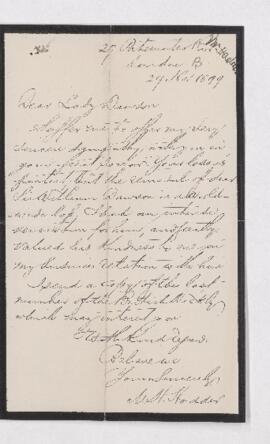 27 Paternoster Row
London
29 Nov 1899
Dear Lady Dawson
Suffer me to offer my very
sincere sympathy with you in
your great sorrow. Your loss is
but the removal of dear
Sir William Dawson is a world-
wide loss. I had an
veneration for him, and greatly
valued his kindness to me in
my business relation with him
I send a copy of the last
number of the
which may interest you
With kind regards
Believe me
Yours sincerely
M. H. Hodder